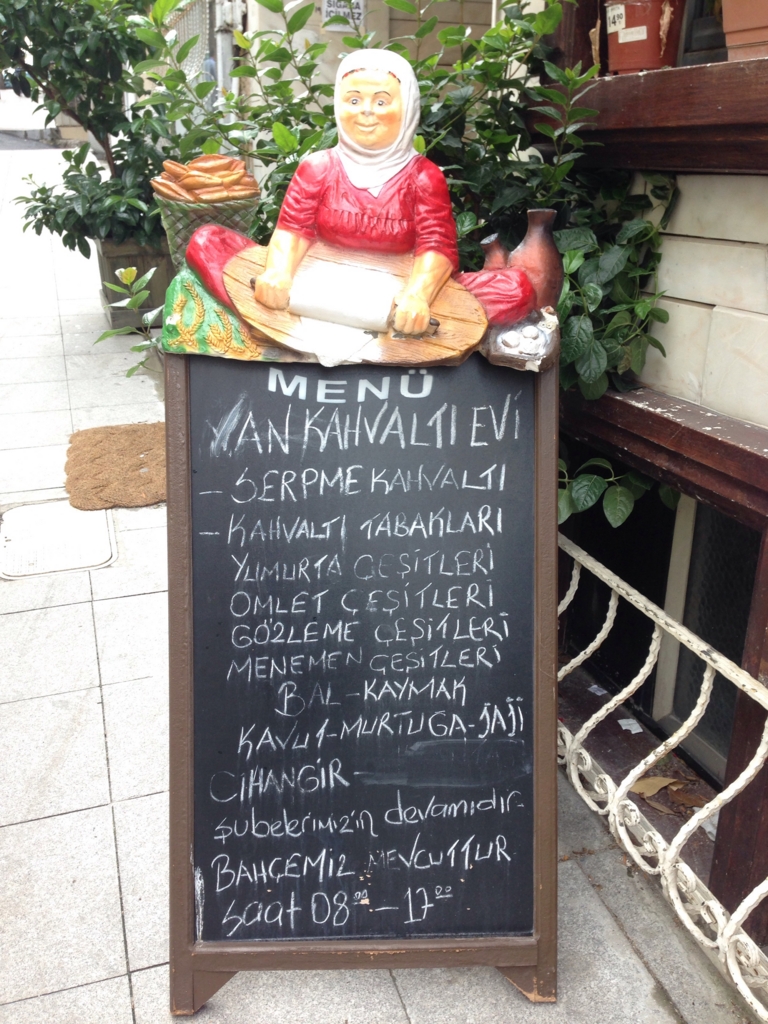 SİGARA
İÇİLMEZ
MENÜ
VAN KAHVALTI EVİ
- SERPME KAHVALTI
- KAHVALTI TABAKLARI
YUMURTA ÇEŞİTLERİ
OMLET ÇEŞİTLERİ
GÖZLEME ÇEŞİTLERİ
MENEMEN ÇEŞİTLERİ
BAL - KAYMAK
KAVUT - MURTUGA - JAJİ
CİHANGİR -
şubelerimizin devamıdır
BAHÇEMİZ MEVCUTTUR
Saat 08⁰⁰ - 17⁰⁰